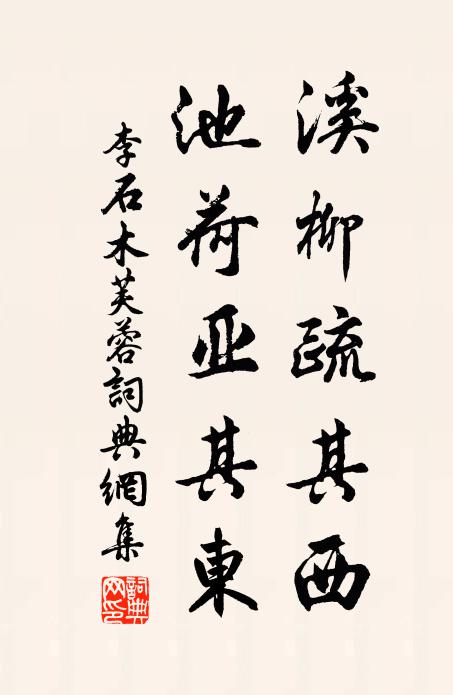 溪柳疏其西
池荷亚其東
李石木芙蓉詞典網集
詞典网印